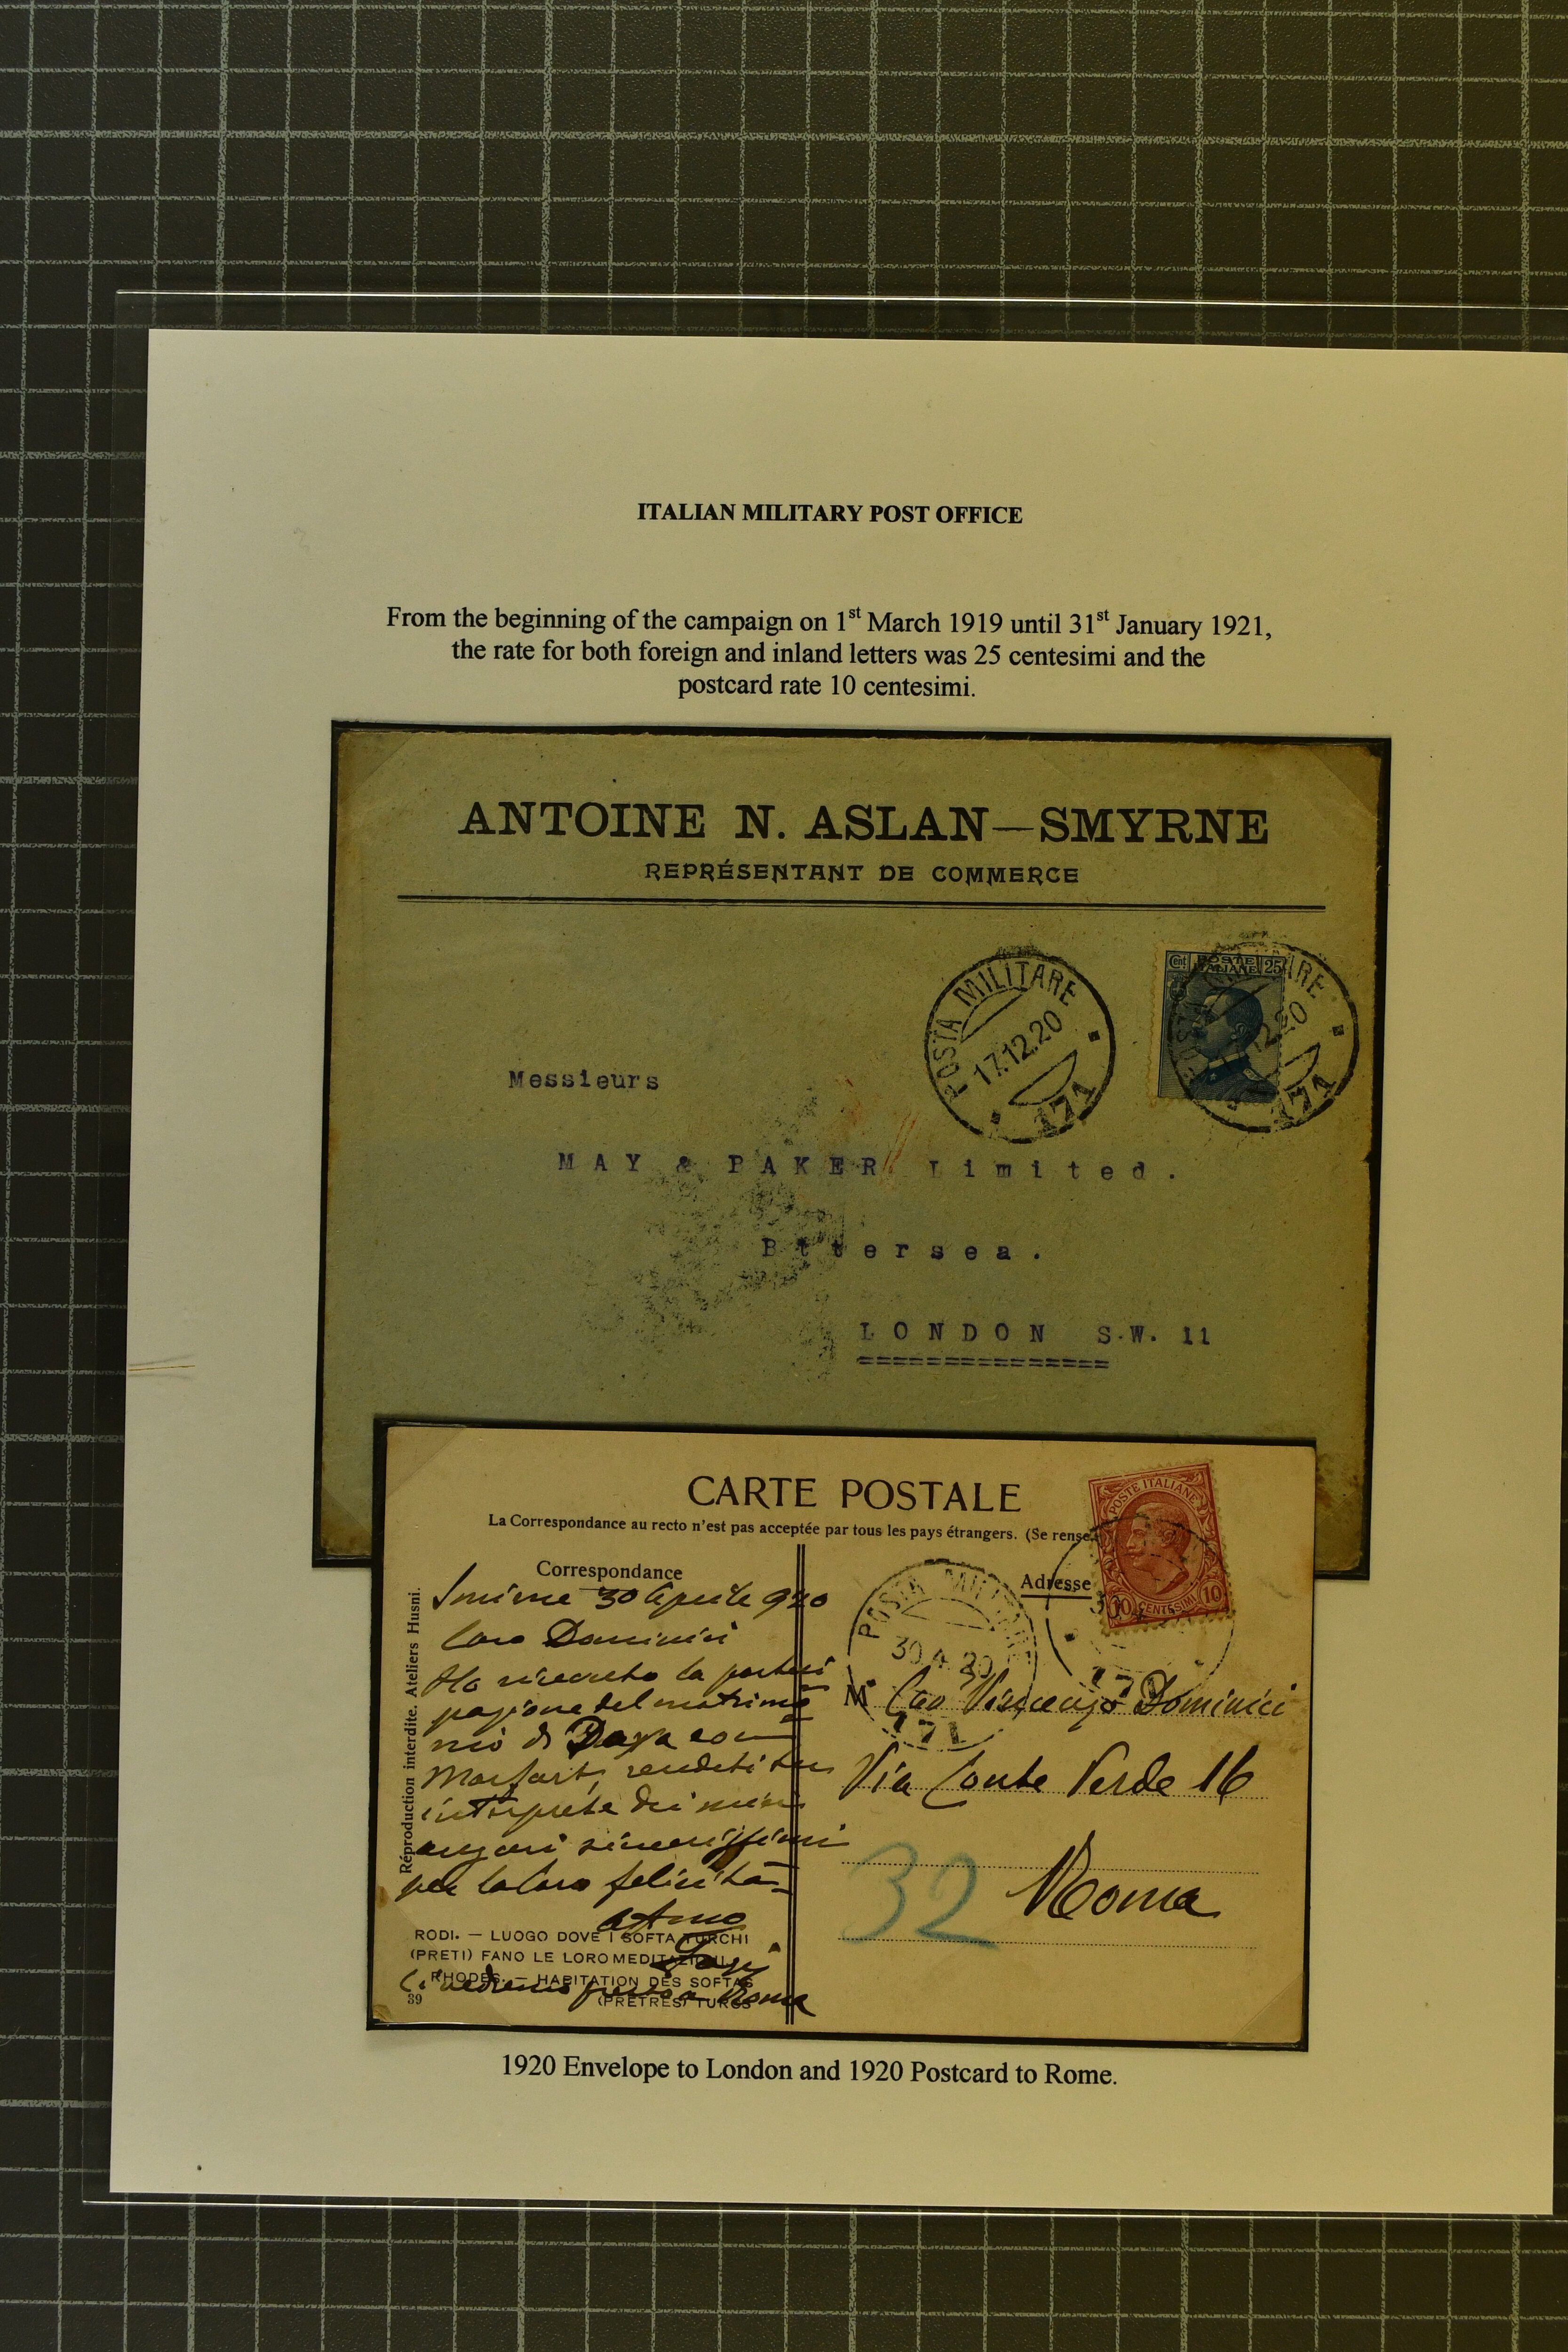 ITALIAN MILITARY POST OFFICE
From the beginning of the campaign on 1st March 1919 until 31st January 1921,
the rate for both foreign and inland letters was 25 centesimi and the
postcard rate 10 centesimi.
ANTOINE N. ASLAN—SMYRNE
REPRÉSENTANT DE COMMERCE
POSTA MILITARE
17.12.20
171
Cent POSTE ITALIANE 25
171
Messieurs
MAY & PAKER Limited.
Bttersea.
LONDON S.W. 11
CARTE POSTALE
La Correspondance au recto n'est pas acceptée par tous les pays étrangers. (Se rense
POSTE ITALIANE
10 CENTESIMI 10
Correspondance
Adresse
POSTA MILITARE
30.4.20
171
Réproduction interdite. Ateliers Husni.
Smirne 30 Aprile 920
Caro Dominici
Ho ricevuto la parteci
pazione del matrimo
nio di
interprete dei miei
auguri sincerissimi
per la loro felicità
M Vincenzo Dominici
Via Conte Verde 16
32 Roma
RODI. — LUOGO DOVE I SOFTA TURCHI
(PRETI) FANO LE LORO MEDITAZIONI
RHODES. — HABITATION DES SOFTAS
(PRÊTRES) TURCS
39
Roma
1920 Envelope to London and 1920 Postcard to Rome.